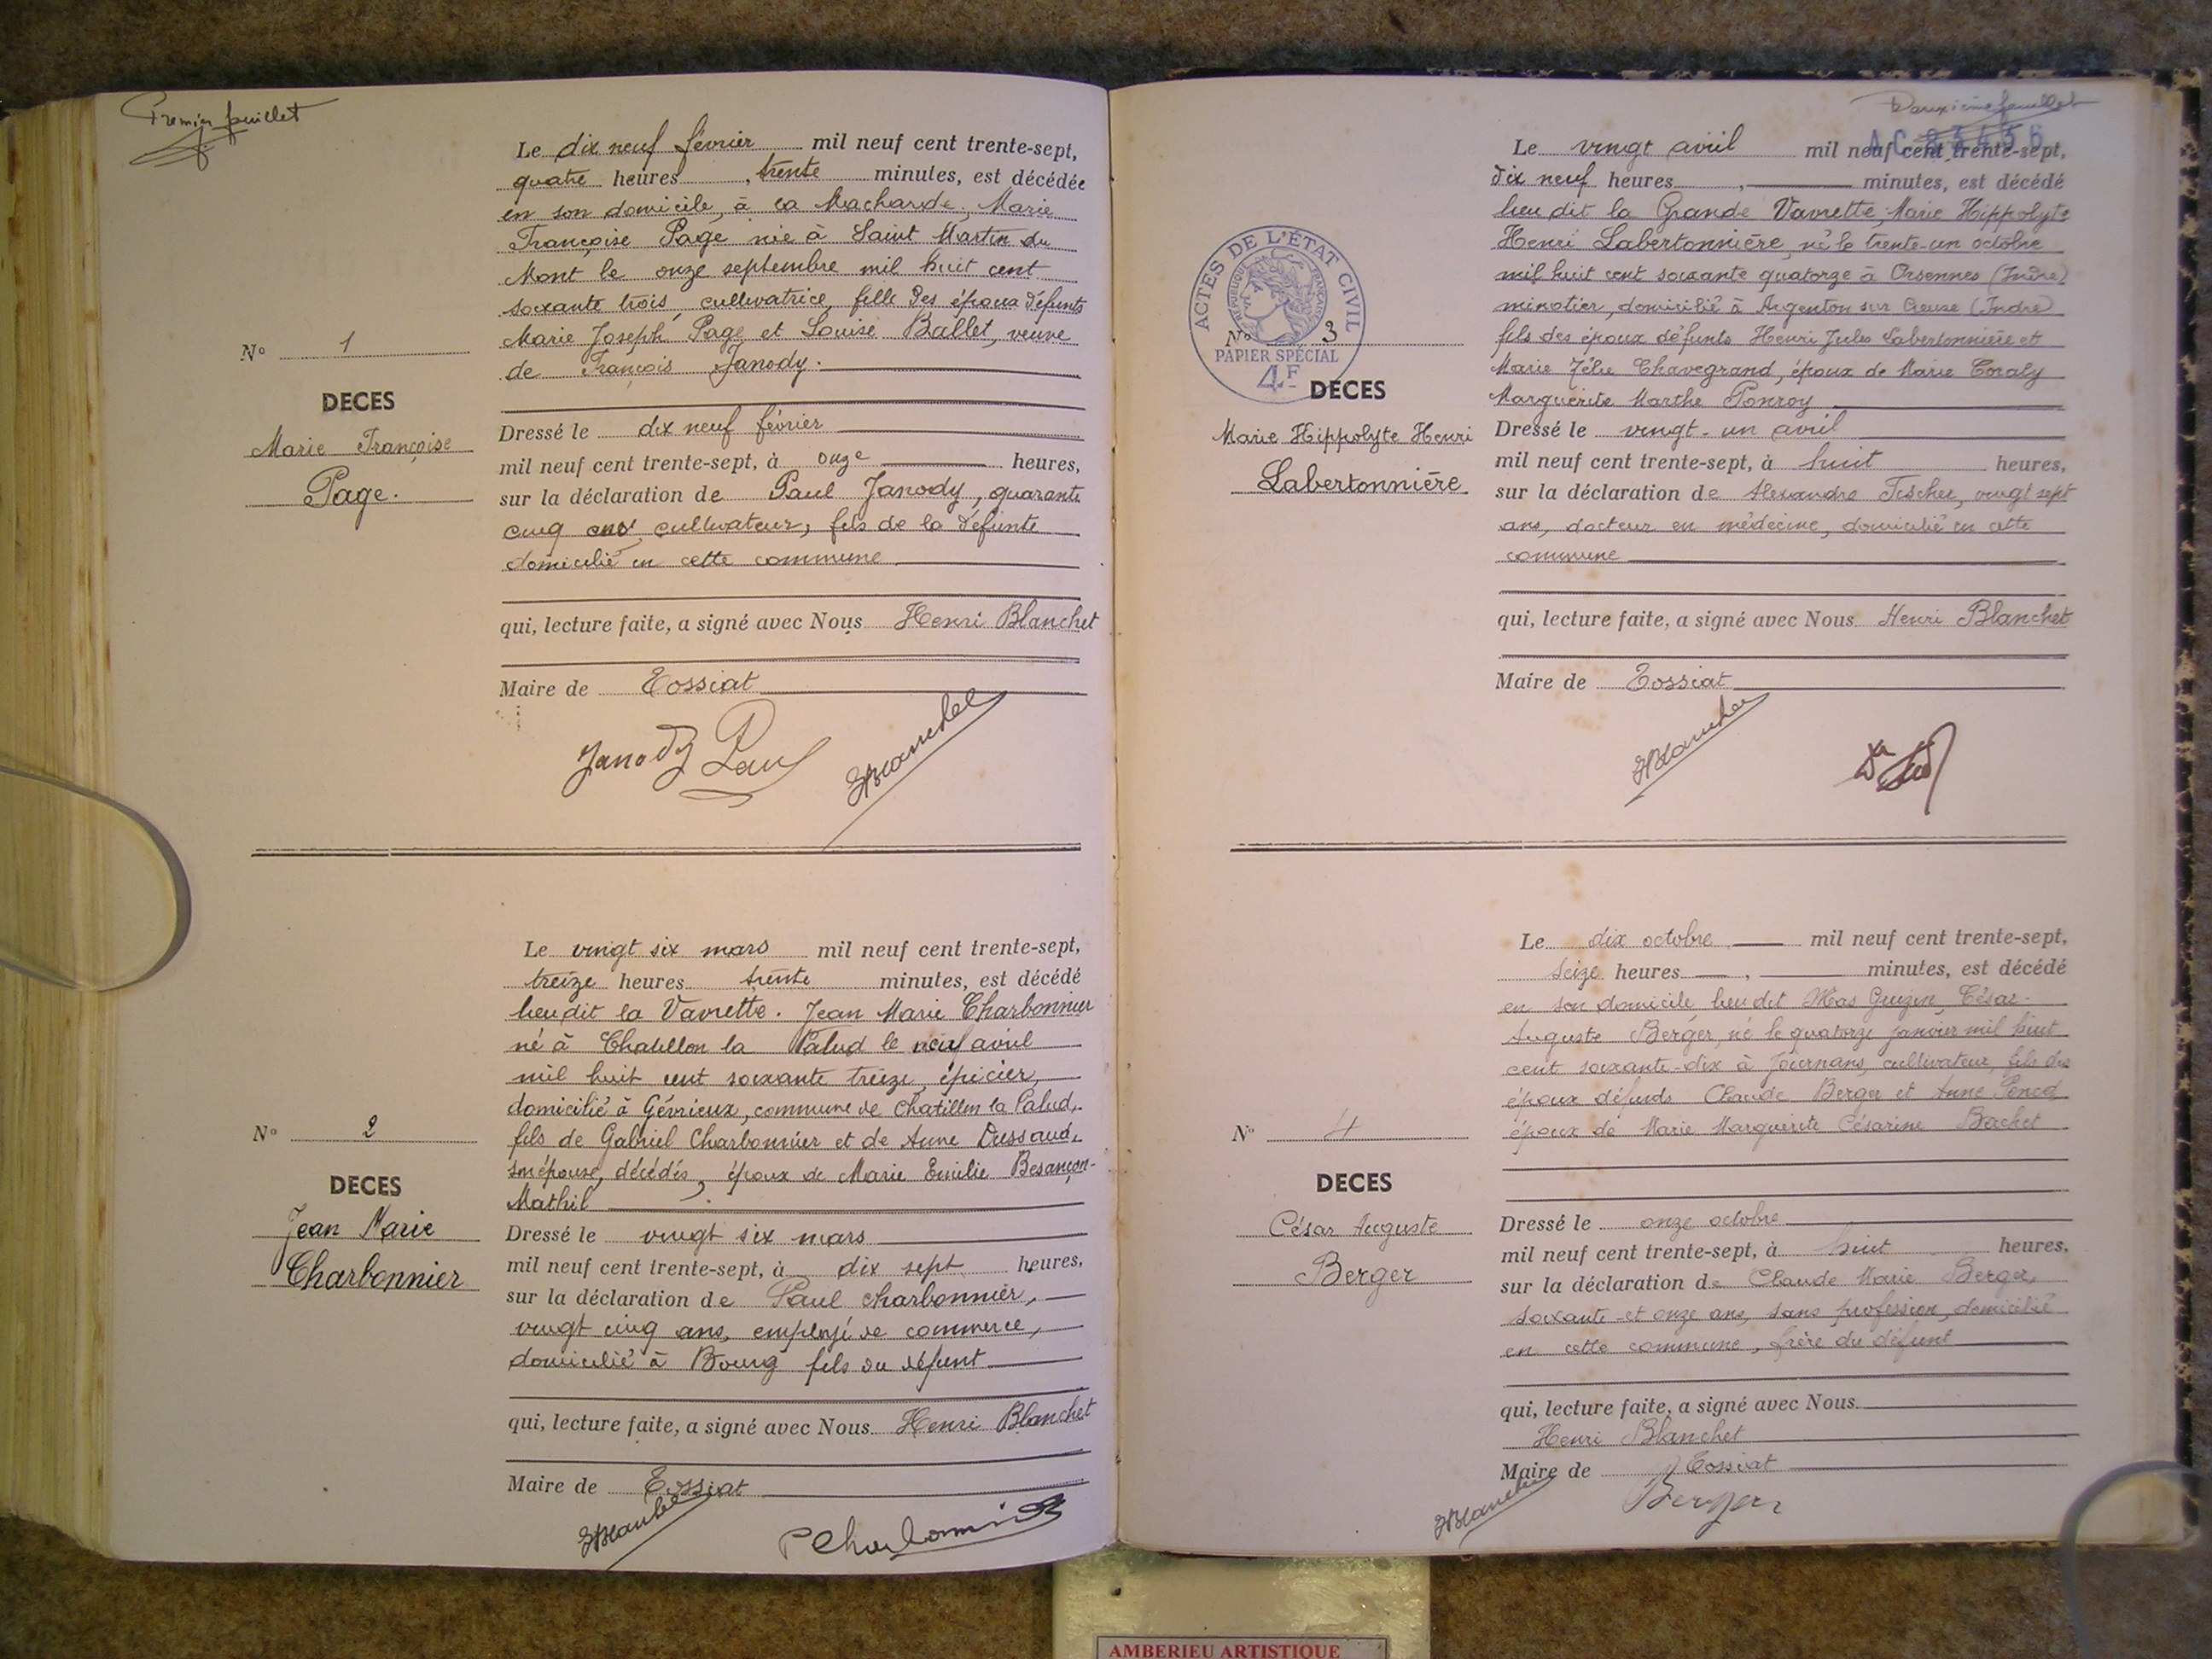 Premier feuillet
Le dix neuf février mil neuf cent trente-sept,
quatre heures, trente minutes, est décédée
en son domicile, à La Macharde, Marie
Françoise Page née à Saint Martin du
Mont le onze septembre mil huit cent
soixante trois, cultivatrice, fille des époux défunts
Marie Joseph Page et Louise Ballet, veuve
de François Janody.
N° 1
DECES
Marie Françoise
Page.
Dressé le dix neuf février
mil neuf cent trente-sept, à onze heures,
sur la déclaration de Paul Janody, quarante
cinq ans, cultivateur, fils de la défunte
domicilié en cette commune
qui, lecture faite, a signé avec Nous Henri Blanchet
Maire de Tossiat
Janody Paul HBlanchet
Le vingt six mars mil neuf cent trente-sept,
treize heures trente minutes, est décédé
lieu dit la Vavrette. Jean Marie Charbonnier
né à Chatillon la Palud le neuf avril
mil huit cent soixante treize, épicier,
domicilié à Gévrieux, commune de Chatillon la Palud,
fils de Gabriel Charbonnier et de Anne Dussaud,
son épouse, décédés, époux de Marie Emilie Besançon-
Mathil
N° 2
DECES
Jean Marie
Charbonnier
Dressé le vingt six mars
mil neuf cent trente-sept, à dix sept heures,
sur la déclaration de Paul Charbonnier,
vingt cinq ans, employé de commerce,
domicilié à Bourg fils du défunt
qui, lecture faite, a signé avec Nous Henri Blanchet
Maire de Tossiat
HBlanchet P Charbonnier
Deuxième feuillet
Le vingt avril mil neuf cent trente-sept,
dix neuf heures, minutes, est décédé
lieu dit la Grande Vavrette, Marie Hippolyte
Henri Labertonnière, né le trente-un octobre
mil huit cent soixante quatorze à Orsennes (Indre)
minotier, domicilié à Argenton sur Creuse (Indre)
fils des époux défunts Henri Jules Labertonnière et
Marie Zélie Chavegrand, époux de Marie Coraly
Marguerite Marthe Ponroy
ACTES DE L'ÉTAT CIVIL
RÉPUBLIQUE FRANÇAISE
N° 3
PAPIER SPÉCIAL
4F
DECES
Marie Hippolyte Henri
Labertonnière
Dressé le vingt-un avril
mil neuf cent trente-sept, à huit heures,
sur la déclaration de Alexandre Tescher, vingt sept
ans, docteur en médecine, domicilié en cette
commune
qui, lecture faite, a signé avec Nous Henri Blanchet
Maire de Tossiat
HBlanchet
Le dix octobre mil neuf cent trente-sept,
seize heures, minutes, est décédé
en son domicile lieu dit Mas Guizin, César-
Auguste Berger, né le quatorze janvier mil huit
cent soixante-dix à Journans, cultivateur, fils des
époux défunts Claude Berger et Anne Pencd
époux de Marie Marguerite Césarine Bachet
N° 4
DECES
César Auguste
Berger
Dressé le onze octobre
mil neuf cent trente-sept, à huit heures,
sur la déclaration de Claude Marie Berger,
soixante-et onze ans, sans profession, domicilié
en cette commune, frère du défunt
qui, lecture faite, a signé avec Nous
Henri Blanchet
Maire de Tossiat
HBlanchet Berger
AMBERIEU ARTISTIQUE